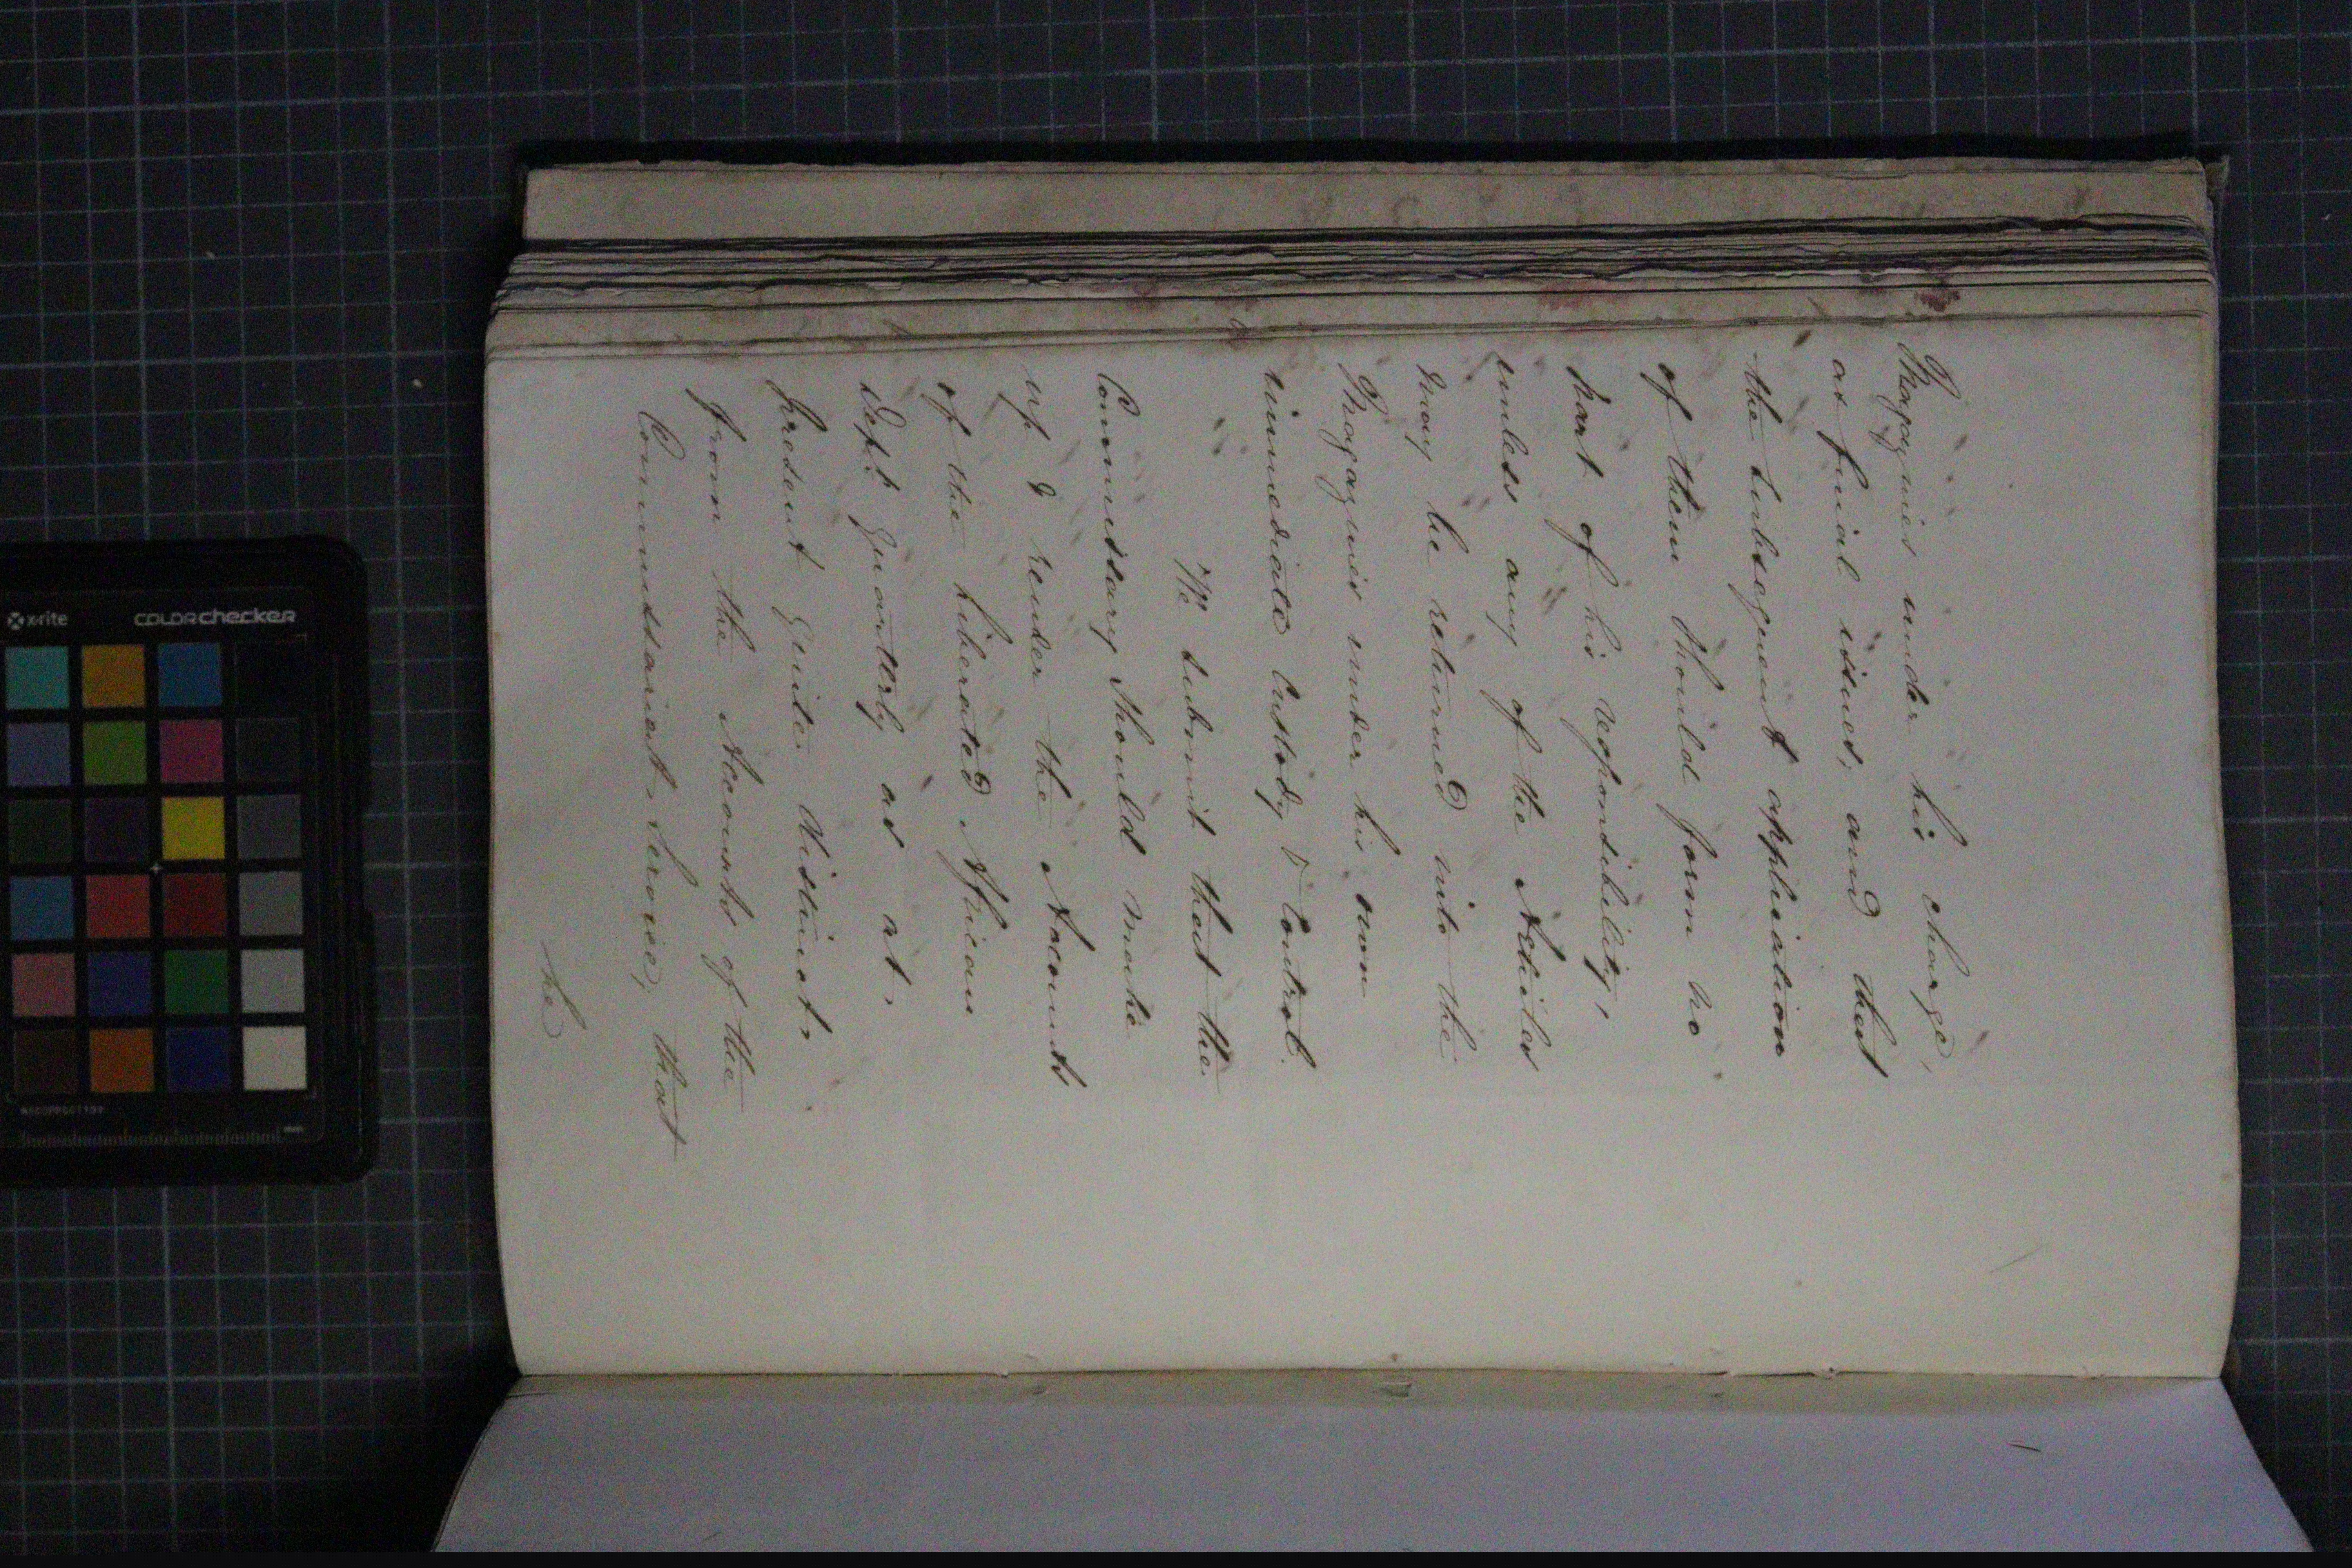 Magazines under his charge,
as final issues; and that
the subsequent application
of them should form no
part of his responsibility,
unless any of the Articles
may be returned into the
Magazines under his own
immediate Custody & Control.
We submit that the
Commissary should make
up & render the Accounts
of the Liberated African
Dept. Quarterly as at
present quite distinct,
from the Accounts of the
Commissariat Service, that
he
x-rite
COLORchecker